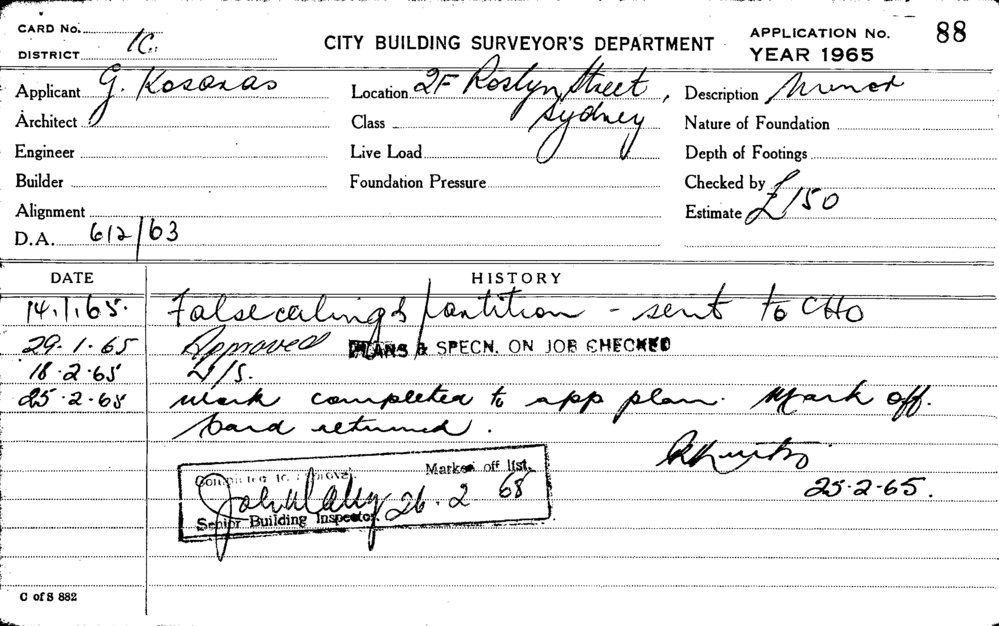 CARD No.
DISTRICT 1C.
CITY BUILDING SURVEYOR'S DEPARTMENT
APPLICATION No. 88
YEAR 1965
Applicant G. Kosaras
Location 2F Roslyn Street, Sydney
Description Minor
Architect
Class
Nature of Foundation
Engineer
Live Load
Depth of Footings
Builder
Foundation Pressure
Checked by
Alignment
Estimate £150
D.A. 612/63
DATE HISTORY
14.1.65. False ceiling & partition - sent to CHO
29.1.65 Approved PLANS & SPECN. ON JOB CHECKED
18.2.65
25.2.65 Work completed to app plan. Mark off.
Card returned.
25.2.65.
Marked off list.
26.2 65
Senior Building Inspector
C of S 882